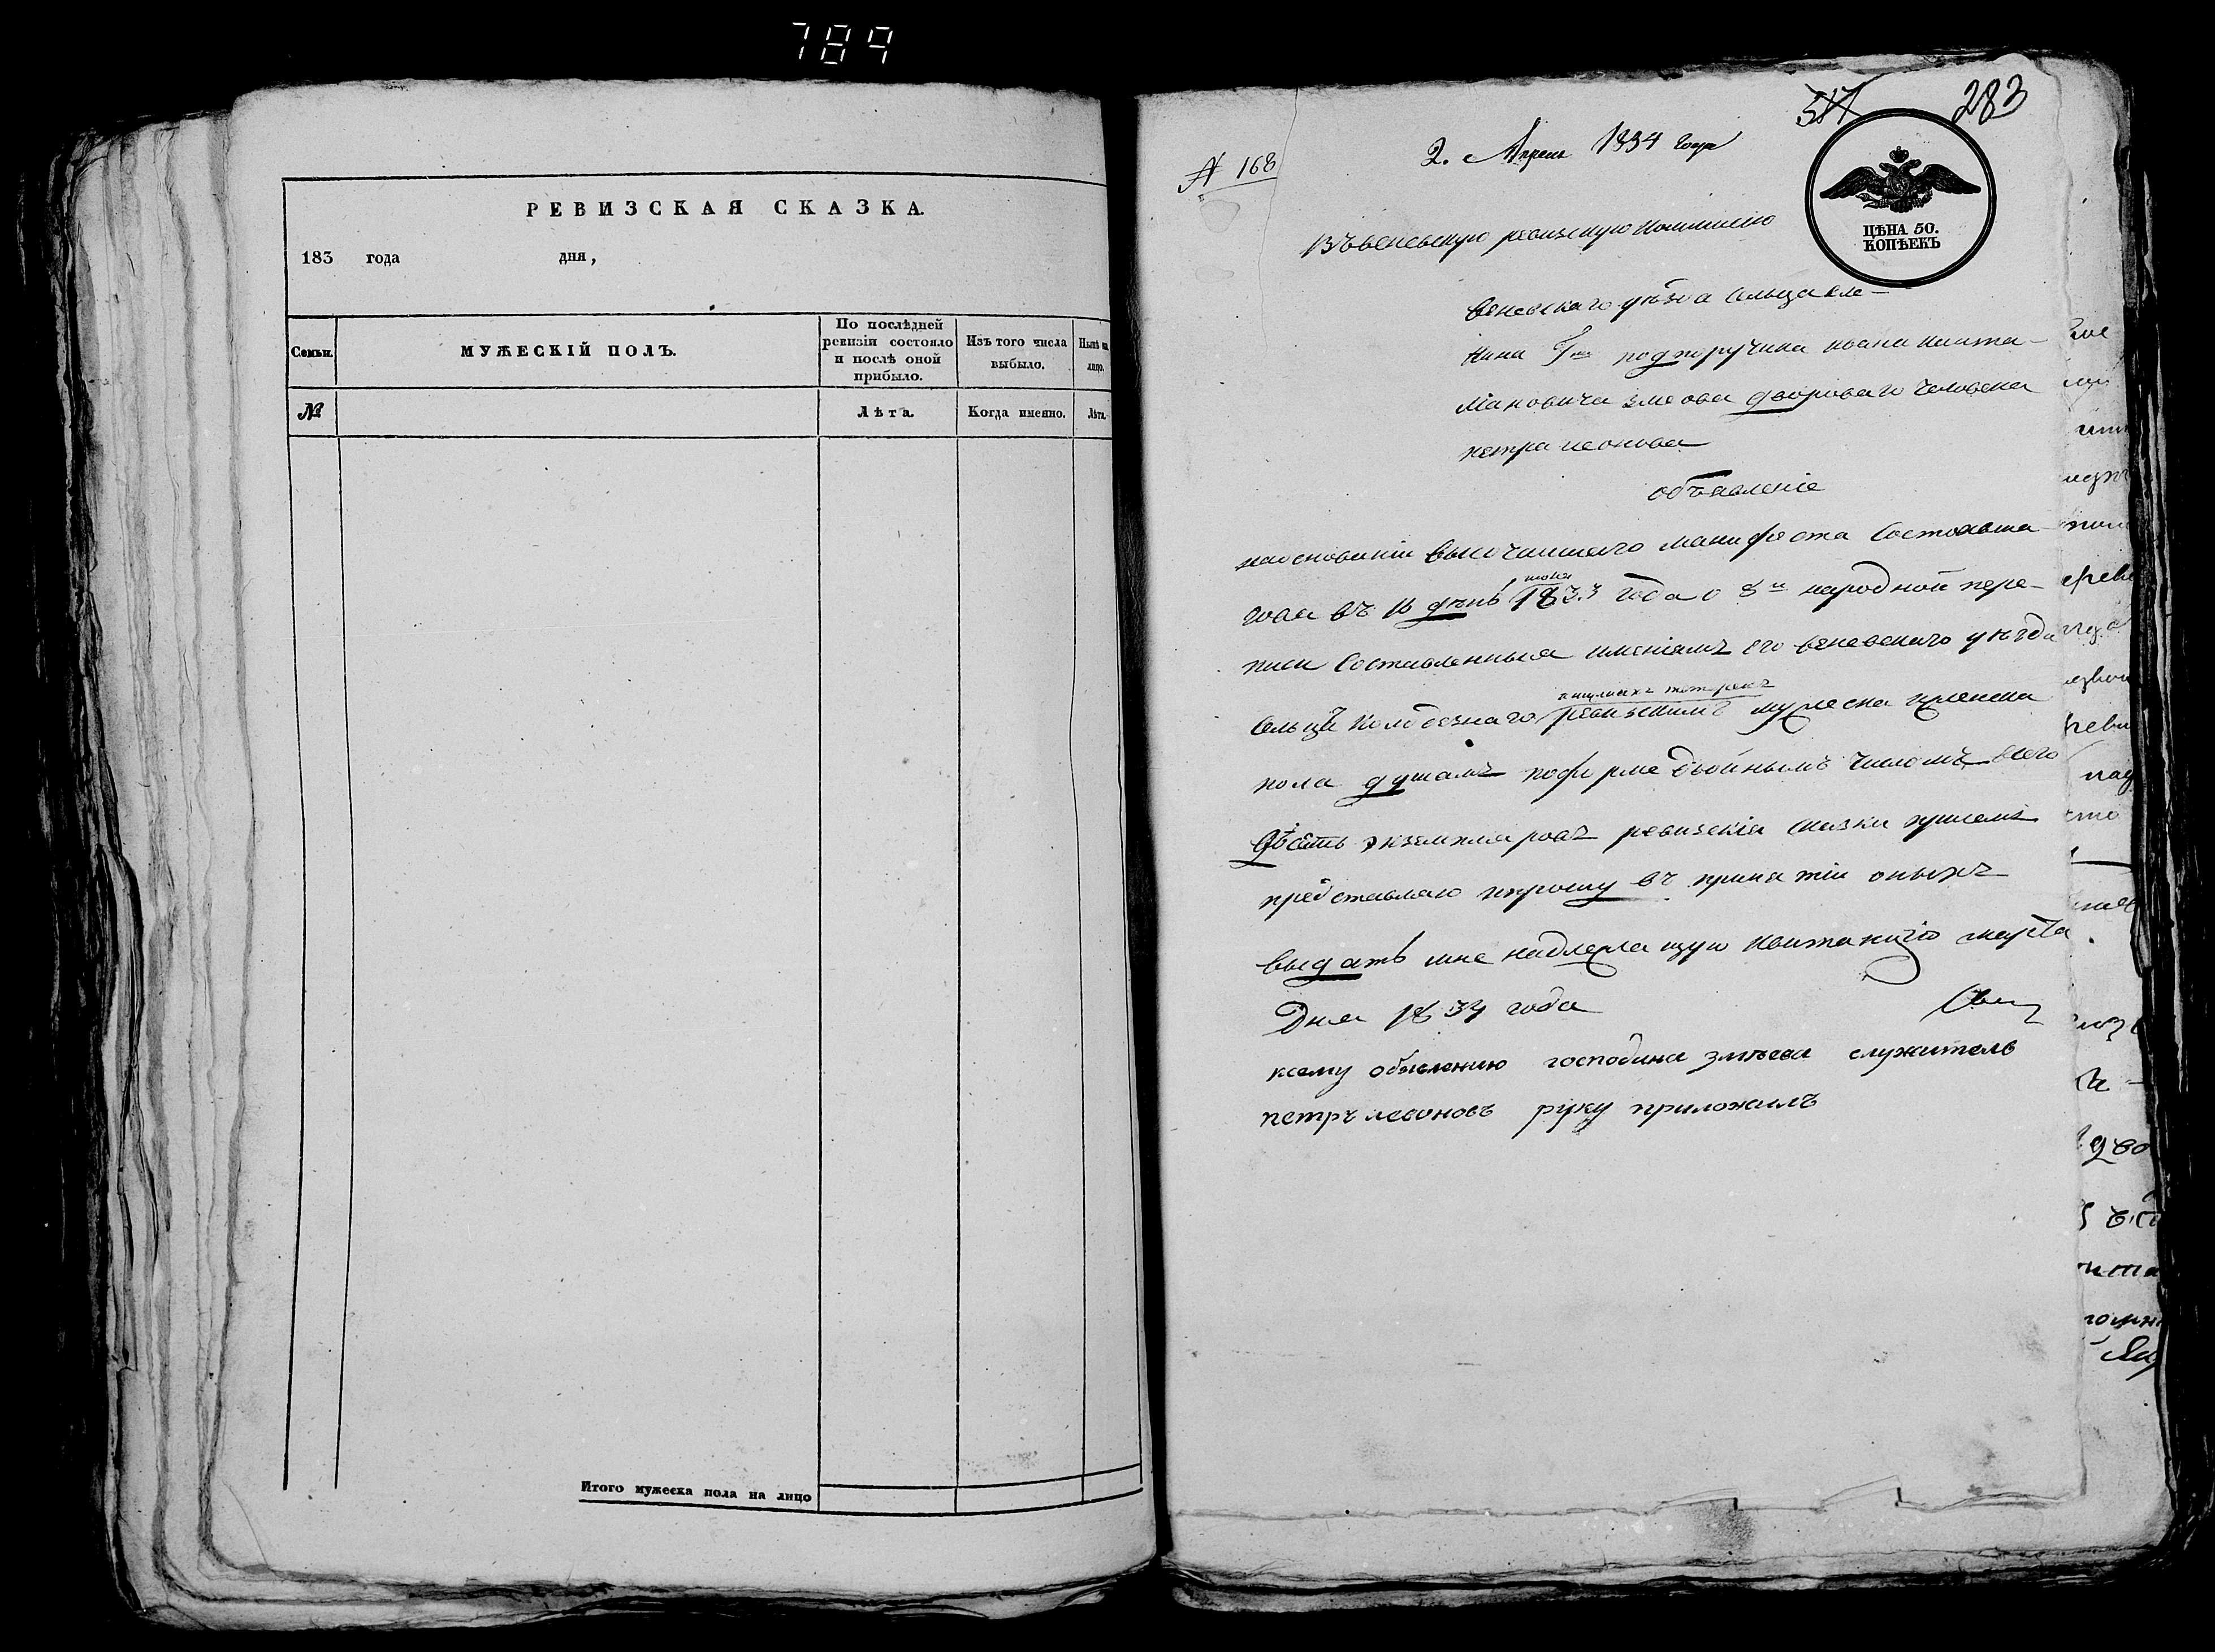 789
РЕВИЗСКАЯ СКАЗКА.
183 года дня,
Семьи.
МУЖЕСКІЙ ПОЛЪ.
По послѣдней
ревизіи состояло
и послѣ оной
прибыло.
Изъ того числа
выбыло.
Нынѣ на
лицо.
№
Лѣта.
Когда именно.
Лѣта.
Итого мужеска пола на лицо
283
№ 168
2. Апреля 1834 года
ЦѢНА 50.
КОПѢЕКЪ
Въ веневскую ревизскую комисию
веневскаго уѣзда сельца
подпоручика ивана
змеова двороваго человека
петра леонова
объявленіе
наоснованіи высочаишаго манифеста состоявша
гося въ 16 день июня 1833 года о 8й народной пере-
писи составленныя имениамъ его веневскаго уѣзда
сельца колодезнаго ревизскимъ мужеска иженска
пола душамъ поформе двойнымъ числомъ всего
экземпляровъ ревизскія сказки присемъ
представляю ипрошу въ принятіи оныхъ
выдать мне надлежащую квитанцію марта
Дня 1834 года
ксему обявлению господина змѣева служитель
петръ левоновъ руку приложилъ